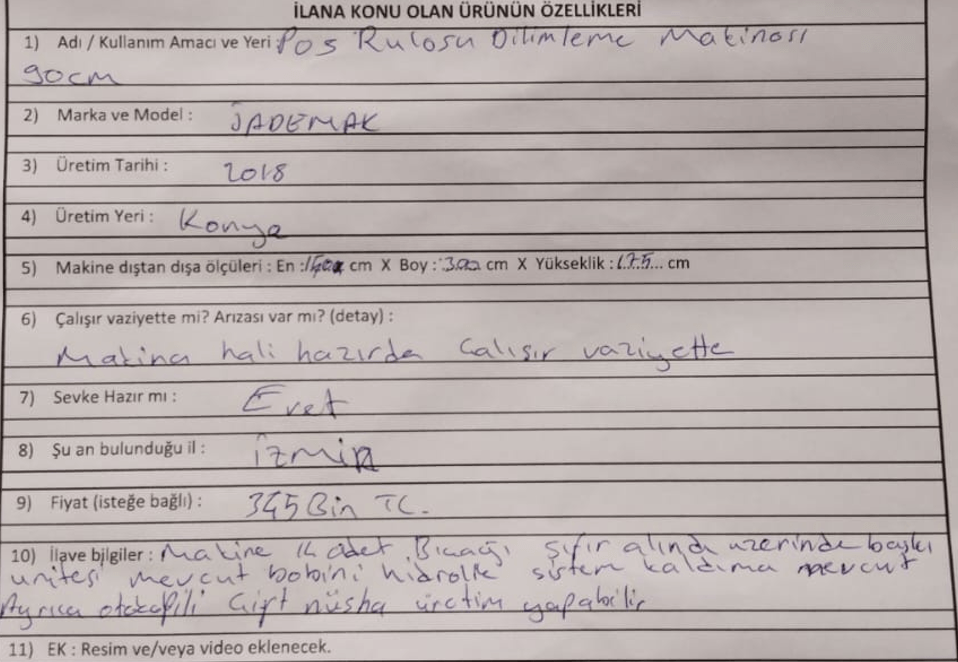 İLANA KONU OLAN ÜRÜNÜN ÖZELLİKLERİ
1) Adı / Kullanım Amacı ve Yeri : Pos Rulosu Dilimleme Makinası
90cm
2) Marka ve Model : JADEMAK
3) Üretim Tarihi : 2018
4) Üretim Yeri : Konya
5) Makine dıştan dışa ölçüleri : En : cm X Boy : 300 cm X Yükseklik : 175... cm
6) Çalışır vaziyette mi? Arızası var mı? (detay) :
Makina hali hazırda Çalışır vaziyette
7) Sevke Hazır mı : Evet
8) Şu an bulunduğu il : İzmir
9) Fiyat (isteğe bağlı) : 345 Bin TL.
10) İlave bilgiler : Makine 14 adet Bıçağı sıfır alındı üzerinde baskı
ünitesi mevcut bobini hidrolik sistem kaldıma mevcut
Ayrıca otokopili Çift nüsha üretim yapabilir
11) EK : Resim ve/veya video eklenecek.